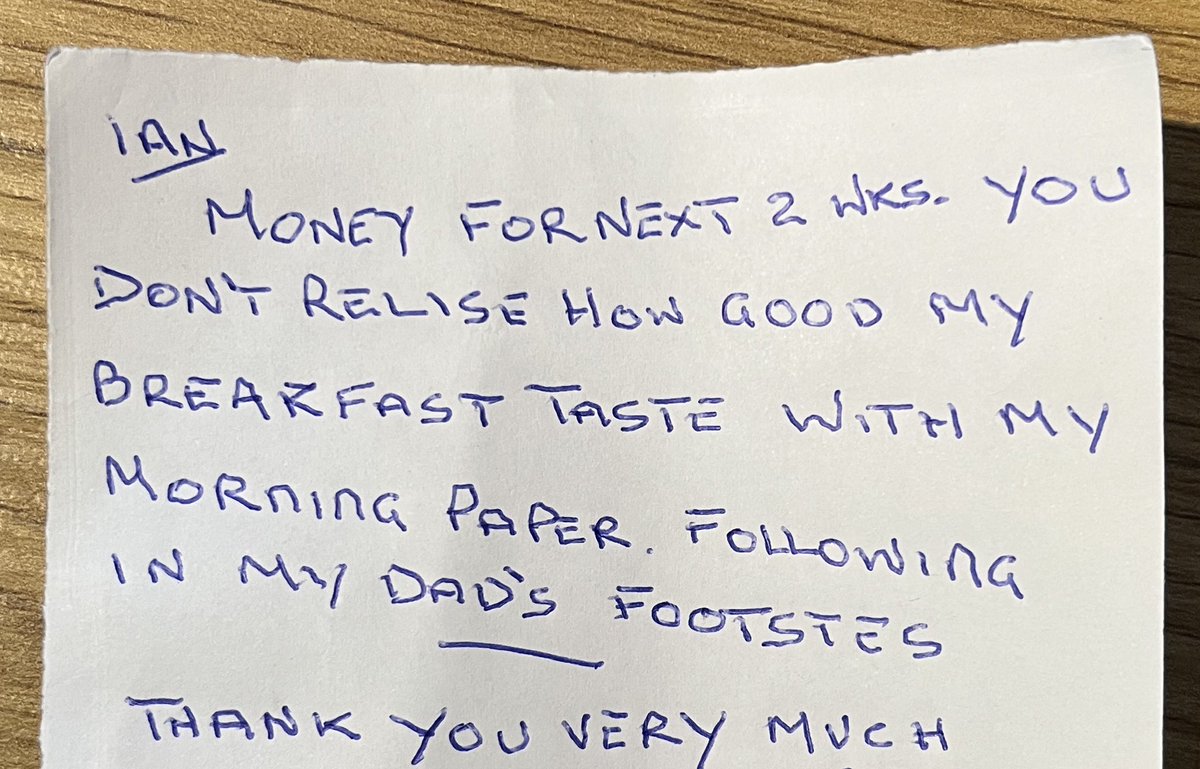 IAN
MONEY FOR NEXT 2 WKS. YOU
DON'T RELISE HOW GOOD MY
BREAKFAST TASTE WITH MY
MORNING PAPER. FOLLOWING
IN MY DAD'S FOOTSTES
THANK YOU VERY MUCH